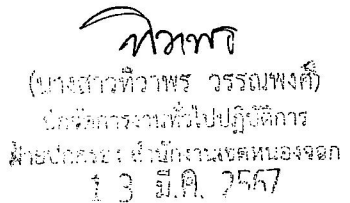 ทิวาพร
(นางสาวทิวาพร วรรณพงศ์)
นักจัดการงานทั่วไปปฏิบัติการ
ฝ่ายปกครอง สำนักงานเขตหนองจอก
1 3 มี.ค. 2567